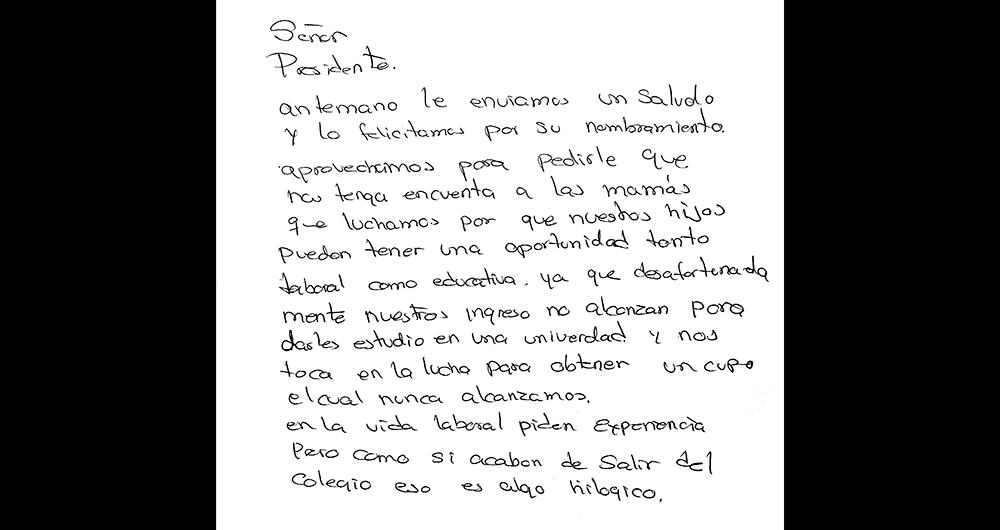 Señor
Presidente.
antemano le enviamos un saludo
y lo felicitamos por su nombramiento.
aprovechamos para pedirle que
nos tenga encuenta a las mamás
que luchamos por que nuestros hijos
puedan tener una oportunidad tanto
laboral como educativa, ya que desafortunada
mente nuestros ingreso no alcanzan para
darles estudio en una univerdad y nos
toca en la lucha para obtener un cupo
el cual nunca alcanzamos.
en la vida laboral piden Experiencia
Pero como si acaban de Salir del
colegio eso es algo hilogico.